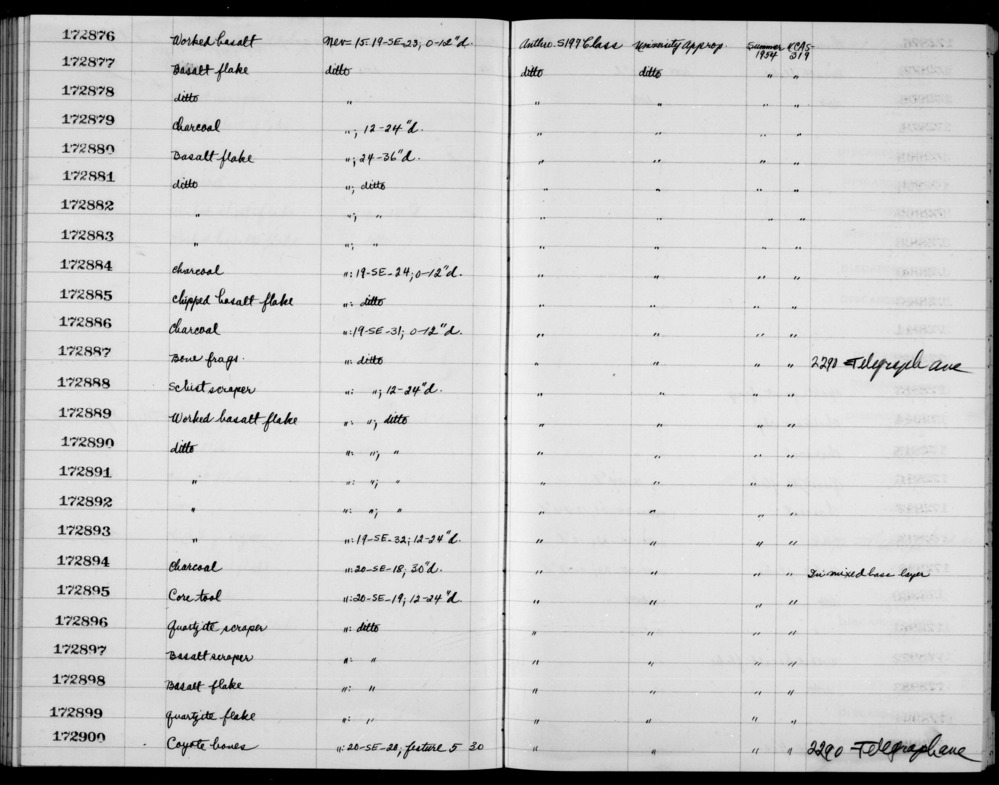 172876 Worked basalt Nev-15:19-SE-23; 0-12"d. Anthro. S197 Class University Approp. Summer 1954 UCAS-319
172877 Basalt flake ditto ditto ditto " "
172878 ditto " " " " "
172879 Charcoal "; 12-24"d. " " " "
172880 Basalt flake "; 24-36"d. " " " "
172881 ditto "; ditto " " " "
172882 " "; " " " " "
172883 " "; " " " " "
172884 Charcoal ": 19-SE-24; 0-12"d. " " " "
172885 Chipped basalt flake ": ditto " " " "
172886 Charcoal ": 19-SE-31; 0-12"d. " " " "
172887 Bone frags. ": ditto " " " " 2290 Telegraph ave
172888 Schist scraper ": "; 12-24"d. " " " "
172889 Worked basalt flake ": "; ditto " " " "
172890 ditto ": "; " " " " "
172891 " ": "; " " " " "
172892 " ": "; " " " " "
172893 " ": 19-SE-32; 12-24"d. " " " "
172894 Charcoal ": 20-SE-18; 30"d. " " " " In mixed bass layer
172895 Core tool ": 20-SE-19; 12-24"d. " " " "
172896 Quartzite scraper ": ditto " " " "
172897 Basalt scraper ": " " " " "
172898 Basalt flake ": " " " " "
172899 Quartzite flake ": " " " " "
172900 Coyote bones ": 20-SE-20; feature 5 30 " " " " 2290 Telegraph ave